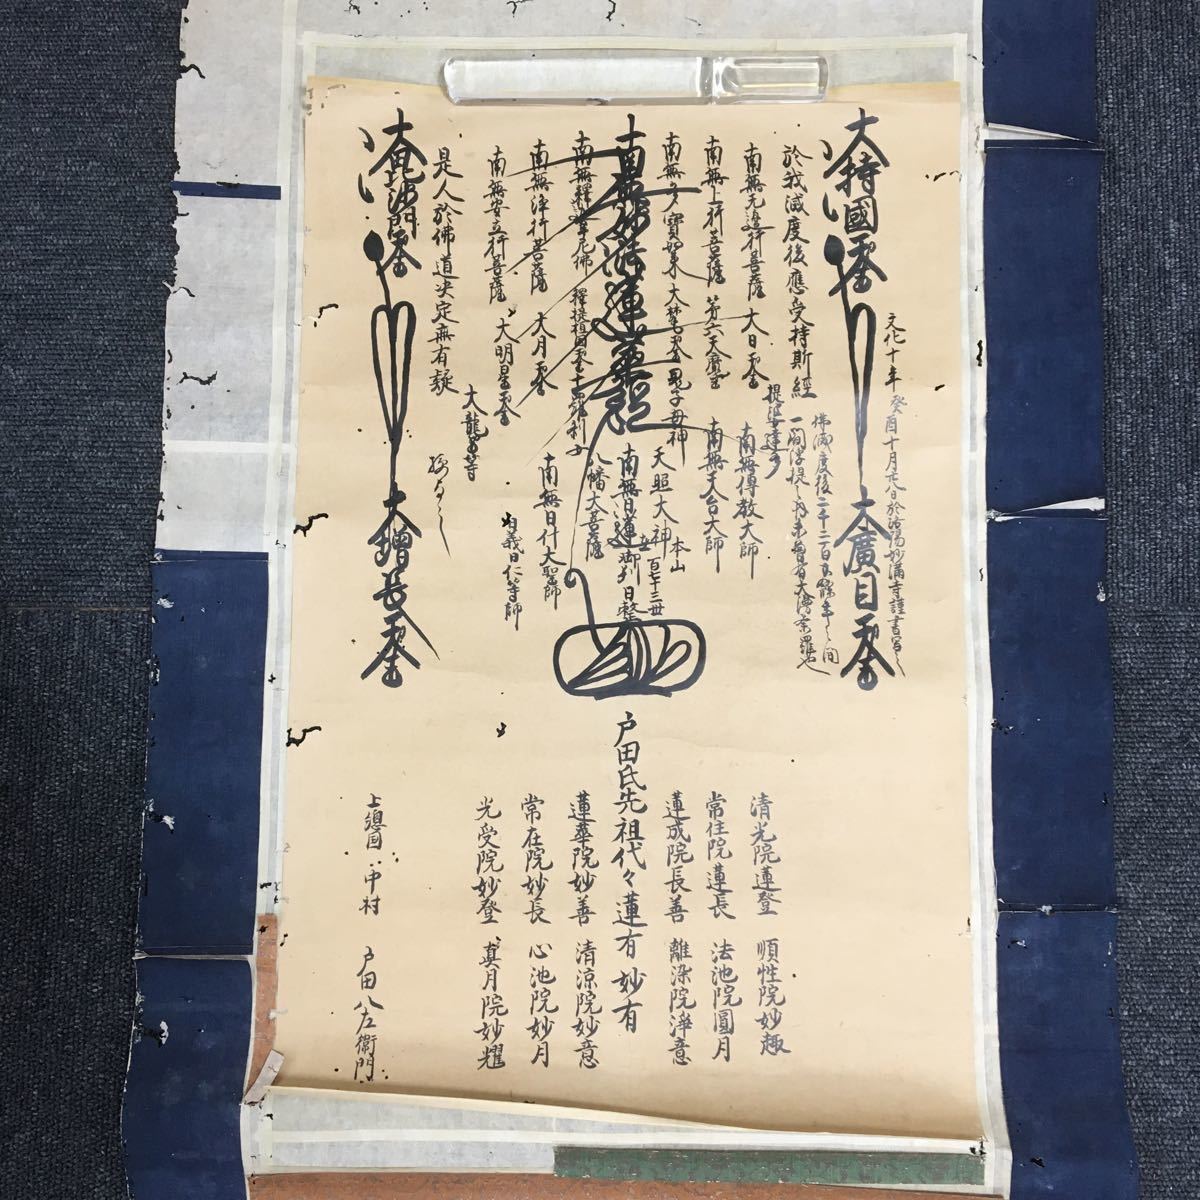 大持國天王
大廣目天王
文化十年癸酉十月
於洛陽妙満寺謹書写之
於我滅度後應受持斯經
佛滅度後二千二百
一閻浮提之内未曾有大漫荼羅也
南無无邊行菩薩
大日天王
提婆達多
南無傳教大師
南無上行菩薩
第六天魔王
南無天台大師
南無多寶如來
大梵天王
鬼子母神
天照大神
南無妙法蓮華經
南無日蓮
本山
日整
南無釋迦牟尼佛
釋提桓因天王
十羅刹女
八幡大菩薩
南無浄行菩薩
大月天王
南無日什大聖師
南無安立行菩薩
大明星天王
日義日仁等師
大龍王等
是人於佛道決定無有疑
大毘沙門天王
大增長天王
清光院蓮登
順性院妙趣
常住院蓮長
法池院圓月
蓮成院長善
離染院淨意
戸田氏先祖代々蓮有妙有
蓮華院妙善
清涼院妙意
常在院妙長
心池院妙月
光受院妙登
真月院妙耀
上總国
中村
戸田八左衛門